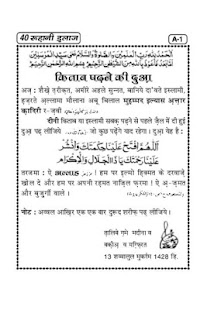 40 रूहानी इलाज
A-1
اَلْحَمْدُ لِلّٰهِ رَبِّ الْعٰلَمِيْنَ وَالصَّلٰوةُ وَالسَّلَامُ عَلٰى سَيِّدِ الْمُرْسَلِيْنَ
اَمَّا بَعْدُ فَاَعُوْذُ بِاللّٰهِ مِنَ الشَّيْطٰنِ الرَّجِيْمِ بِسْمِ اللّٰهِ الرَّحْمٰنِ الرَّحِيْمِ
किताब पढ़ने की दुआ
अज़ : शैख़े त़रीक़त, अमीरे अहले सुन्नत, बानिये दा'वते इस्लामी,
ह़ज़रते अ़ल्लामा मौलाना अबू बिलाल मुह़म्मद इल्यास अ़त्त़ार
क़ादिरी र-ज़वी
दीनी किताब या इस्लामी सबक़ पढ़ने से पहले ज़ैल में दी हुई
दुआ़ पढ़ लीजिये जो कुछ पढ़ेंगे याद रहेगा। दुआ़ येह है :
اَللّٰهُمَّ افْتَحْ عَلَيْنَا حِكْمَتَكَ وَانْشُرْ
عَلَيْنَا رَحْمَتَكَ يَا ذَا الْجَلَالِ وَالْاِكْرَام
तरजमा : ऐ अल्लाह ! हम पर इ़ल्मो ह़िक्मत के दरवाज़े
खोल दे और हम पर अपनी रह़मत नाज़िल फ़रमा ! ऐ अ़-ज़मत
और बुज़ुर्गी वाले।
नोट : अव्वल आख़िर एक एक बार दुरूद शरीफ़ पढ़ लीजिये।
त़ालिबे ग़मे मदीना व
बक़ीअ़ व मग़्फ़िरत
13 शव्वालुल मुकर्रम 1428 हि.